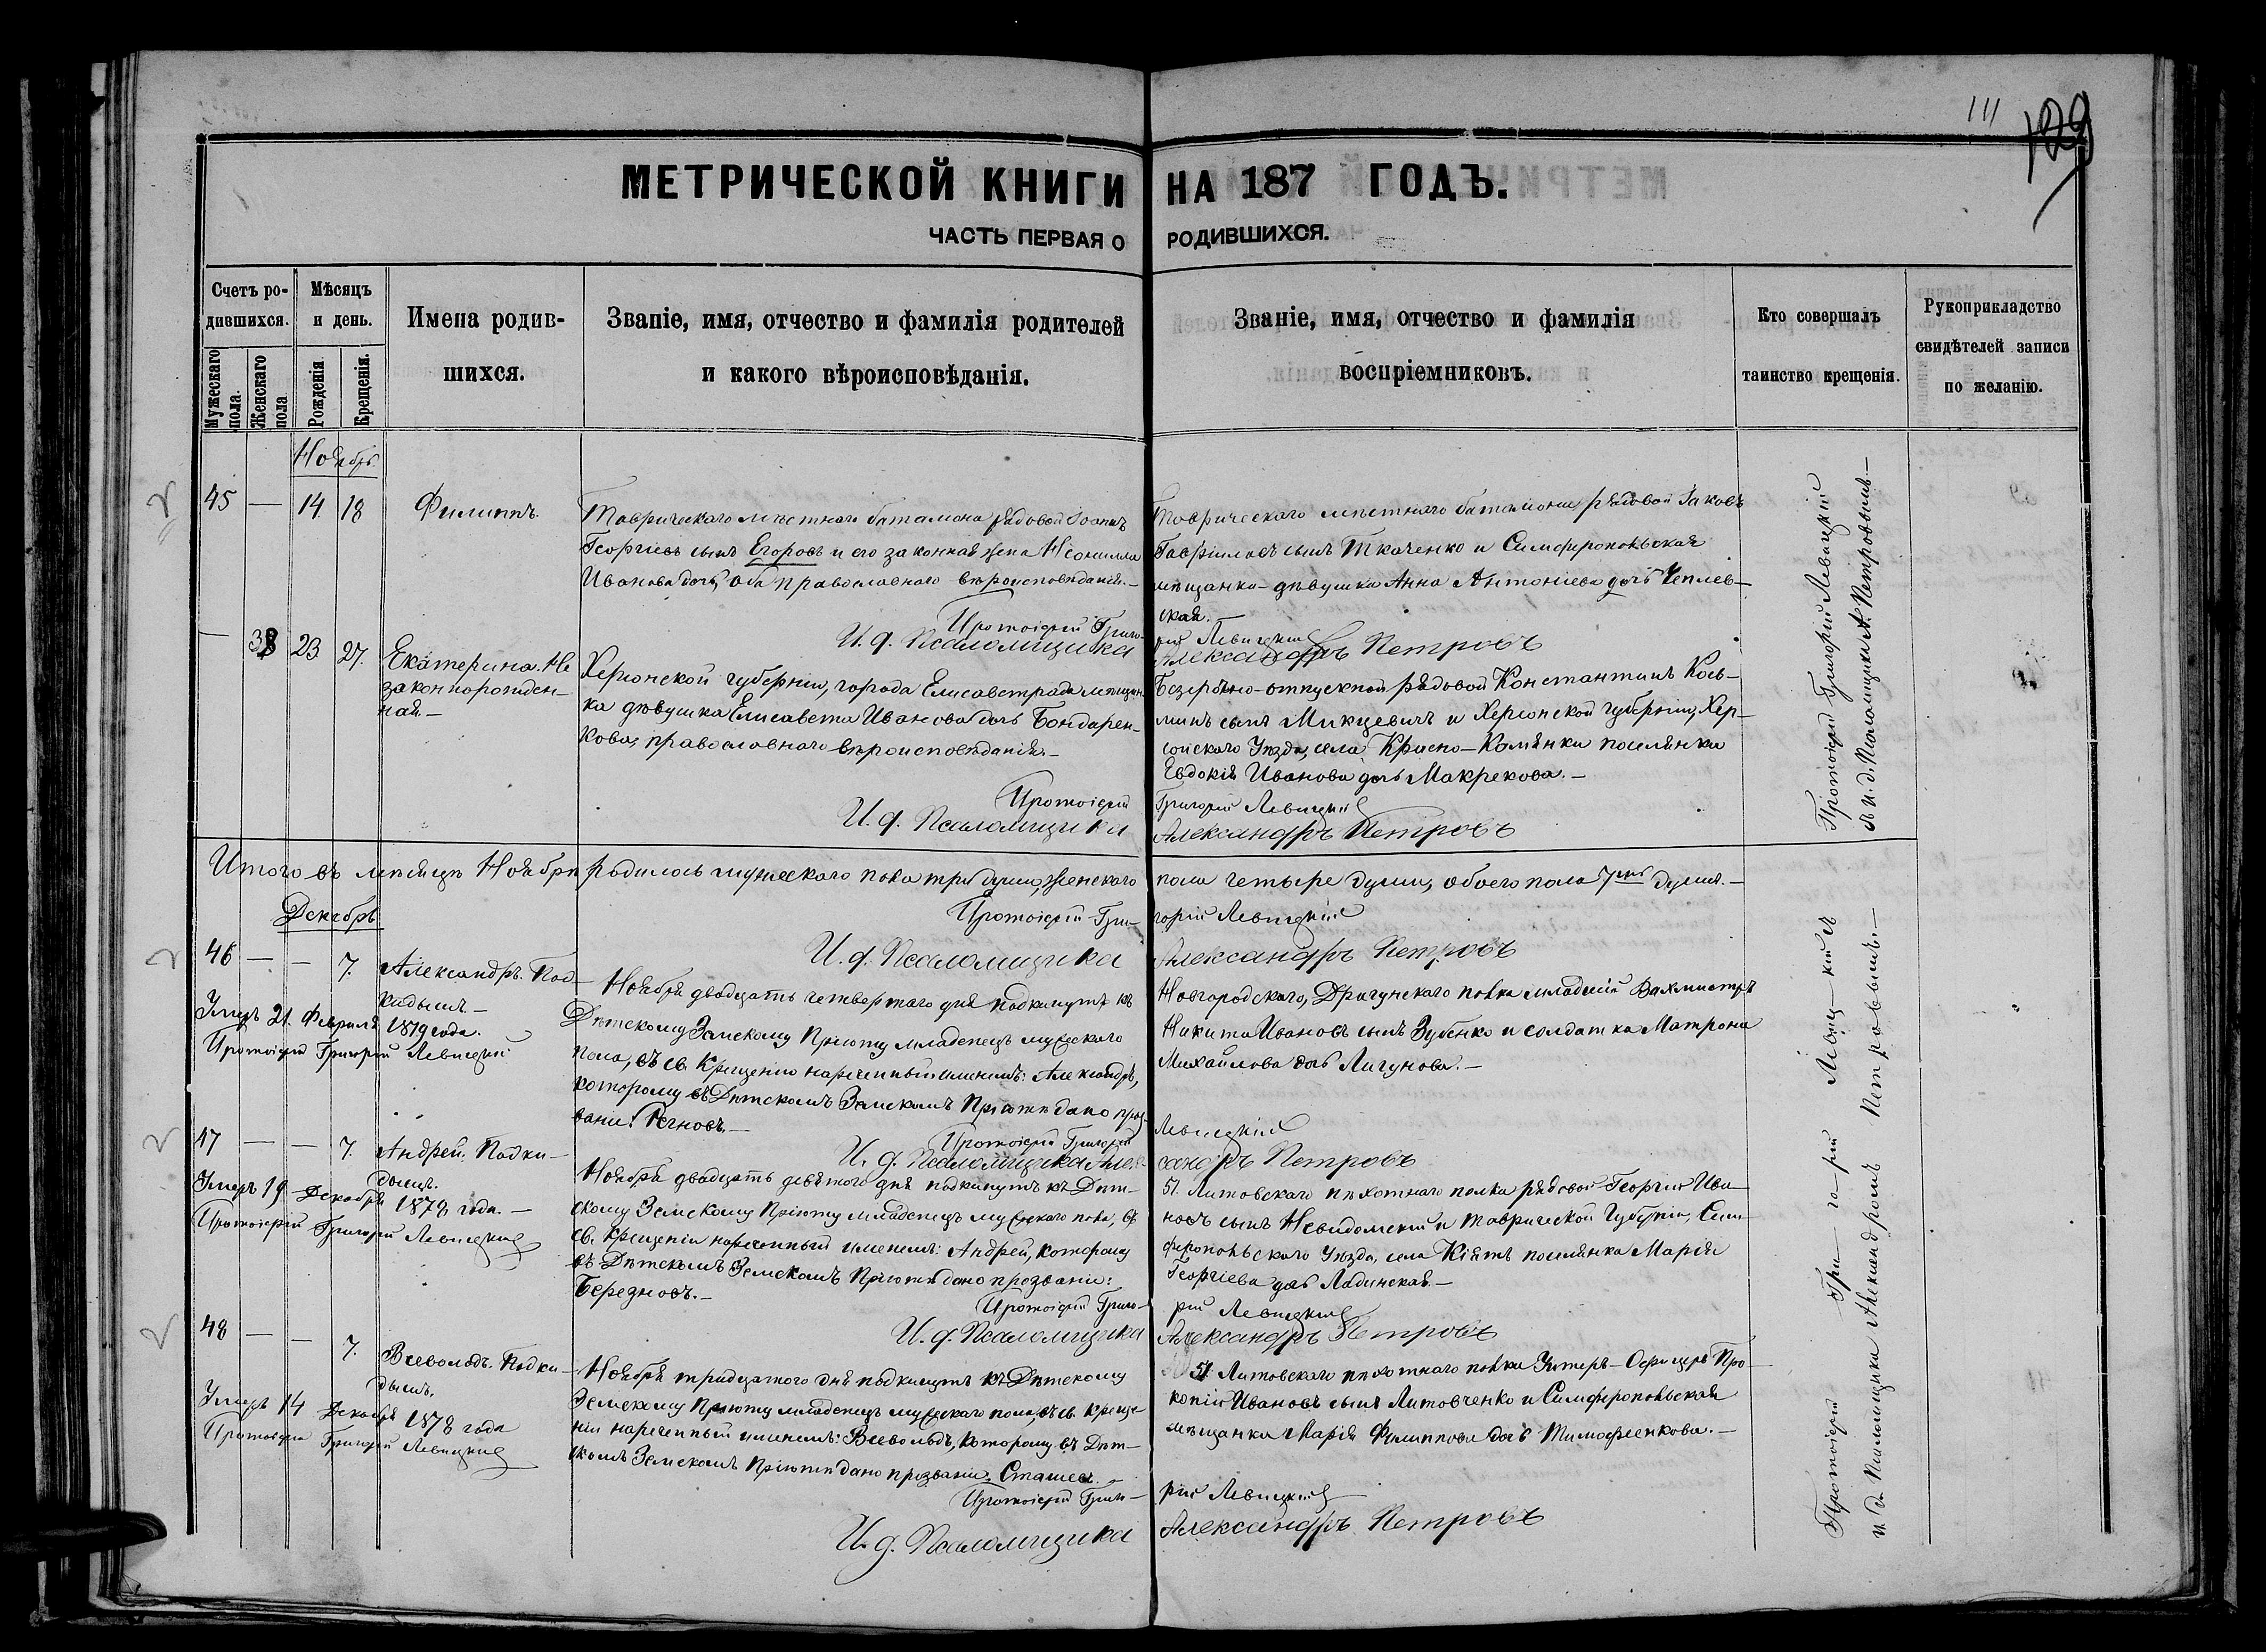 111
129
МЕТРИЧЕСКОЙ КНИГИ НА 187 ГОДЪ.
ЧАСТЬ ПЕРВАЯ О РОДИВШИХСЯ.
Счетъ ро-
дившихся.
Мужескаго пола.
Женскаго пола
Мѣсяцъ
и день.
Рожденія.
Крещенія.
Имена родив-
шихся.
Званіе, имя, отчество и фамилія родителей
и какого вѣроисповѣданія.
Званіе, имя, отчество и фамилія
воспріемниковъ.
Кто совершалъ
таинство крещенія.
Рукоприкладство
свидѣтелей записи
по желанію.
Ноябрь
45 — 14 18 Филиппъ.
Таврическаго мѣстнаго баталіона рядовой Іоаннъ
Георгіевъ сынъ Егоровъ и его законная жена Неонилла
Иванова дочь, оба православнаго вѣроисповѣданія.—
Таврическаго мѣстнаго баталіона рядовой Іаковъ
Гавріиловъ сынъ Ткаченко и Симферопольская
мѣщанка-дѣвушка Анна Антоніева дочь Чеплев-
ская.—
Протоіерей Григо-
рій Левицкій
И. д. Псаломщика Александръ Петровъ
— 38 23 27. Екатерина. Не
законнорожден-
ная.—
Херсонской губерніи, города Елисаветграда мѣщан-
ка дѣвушка Елисавета Иванова дочь Бондарен-
кова, православнаго вѣроисповѣданія.—
Безсрочно-отпускной рядовой Константинъ Кось-
минъ сынъ Микцевичъ и Херсонской губерніи, Хер-
сонскаго Уѣзда, села Красно-Камянки поселянка
Евдокія Иванова дочь Макрекова.—
Протоіерей Григорій Левицкій
И. д. Псаломщика Александръ Петровъ
Протоіерей Григорій Левицкій
съ и. д. Псаломщика А. Петровымъ.—
Итого въ мѣсяцѣ Ноябрѣ родилось мужескаго пола три души, женскаго пола четыре души, обоего пола 7 душъ.—
Протоіерей Гри-
горій Левицкій
И. д. Псаломщика Александръ Петровъ
Декабрь
46 — — 7. Александръ. Под-
кидышъ.—
Умеръ 21 Февраля 1879 года.
Протоіерей Григорій Левицкій
Ноября двадцать четвертаго дня подкинутъ къ
Дѣтскому Земскому Пріюту младенецъ мужескаго
пола, въ св. Крещеніи нареченный именемъ: Александръ,
которому въ Дѣтскомъ Земскомъ Пріютѣ дано проз-
ваніе:
Новгородскаго, Драгунскаго полка младшій Вахмистръ
Никита Ивановъ сынъ Зубенко и солдатка Матрона
Михайлова дочь Лигунова.—
Протоіерей Григорій Левицкій
И. д. Псаломщика Александръ Петровъ
47 — — 7. Андрей. Подки-
дышъ.
Умеръ 19 Декабря 1878 года.—
Протоіерей Григорій Левицкій
Ноября двадцать девятого дня подкинутъ къ Дѣт-
скому Земскому Пріюту младенецъ мужескаго пола, въ
св. Крещеніи нареченный именемъ: Андрей, которому
въ Дѣтскомъ Земскомъ Пріютѣ дано прозваніе:
Березновъ.—
51. Литовскаго пѣхотнаго полка рядовой Георгій Ива-
новъ сынъ Невидомскій и Таврической Губерніи, Сим-
феропольскаго Уѣзда, села Кіятъ поселянка Марія
Георгіева дочь Ладинская.—
Протоіерей Григо-
рій Левицкій
И. д. Псаломщика Александръ Петровъ
48 — — 7. Всеволодъ. Подки-
дышъ.
Умеръ 14 Декабря 1878 года
Протоіерей Григорій Левицкій
Ноября тридцатого дня подкинутъ къ Дѣтскому
Земскому Пріюту младенецъ мужескаго пола, въ св. Креще-
ніи нареченный именемъ: Всеволодъ, которому въ Дѣт-
скомъ Земскомъ Пріютѣ дано прозваніе: Сташевъ.—
51 Литовскаго пѣхотнаго полка Унтеръ-Офицеръ Про-
копій Ивановъ сынъ Литовченко и Симферопольская
мѣщанка Марія Филиппова дочь Тимофеенкова.—
Протоіерей Григо-
рій Левицкій
И. д. Псаломщика Александръ Петровъ
Протоіерей Гри-го-рій Левиц-кій съ
и. д. Псаломщика Александромъ Петровымъ.—